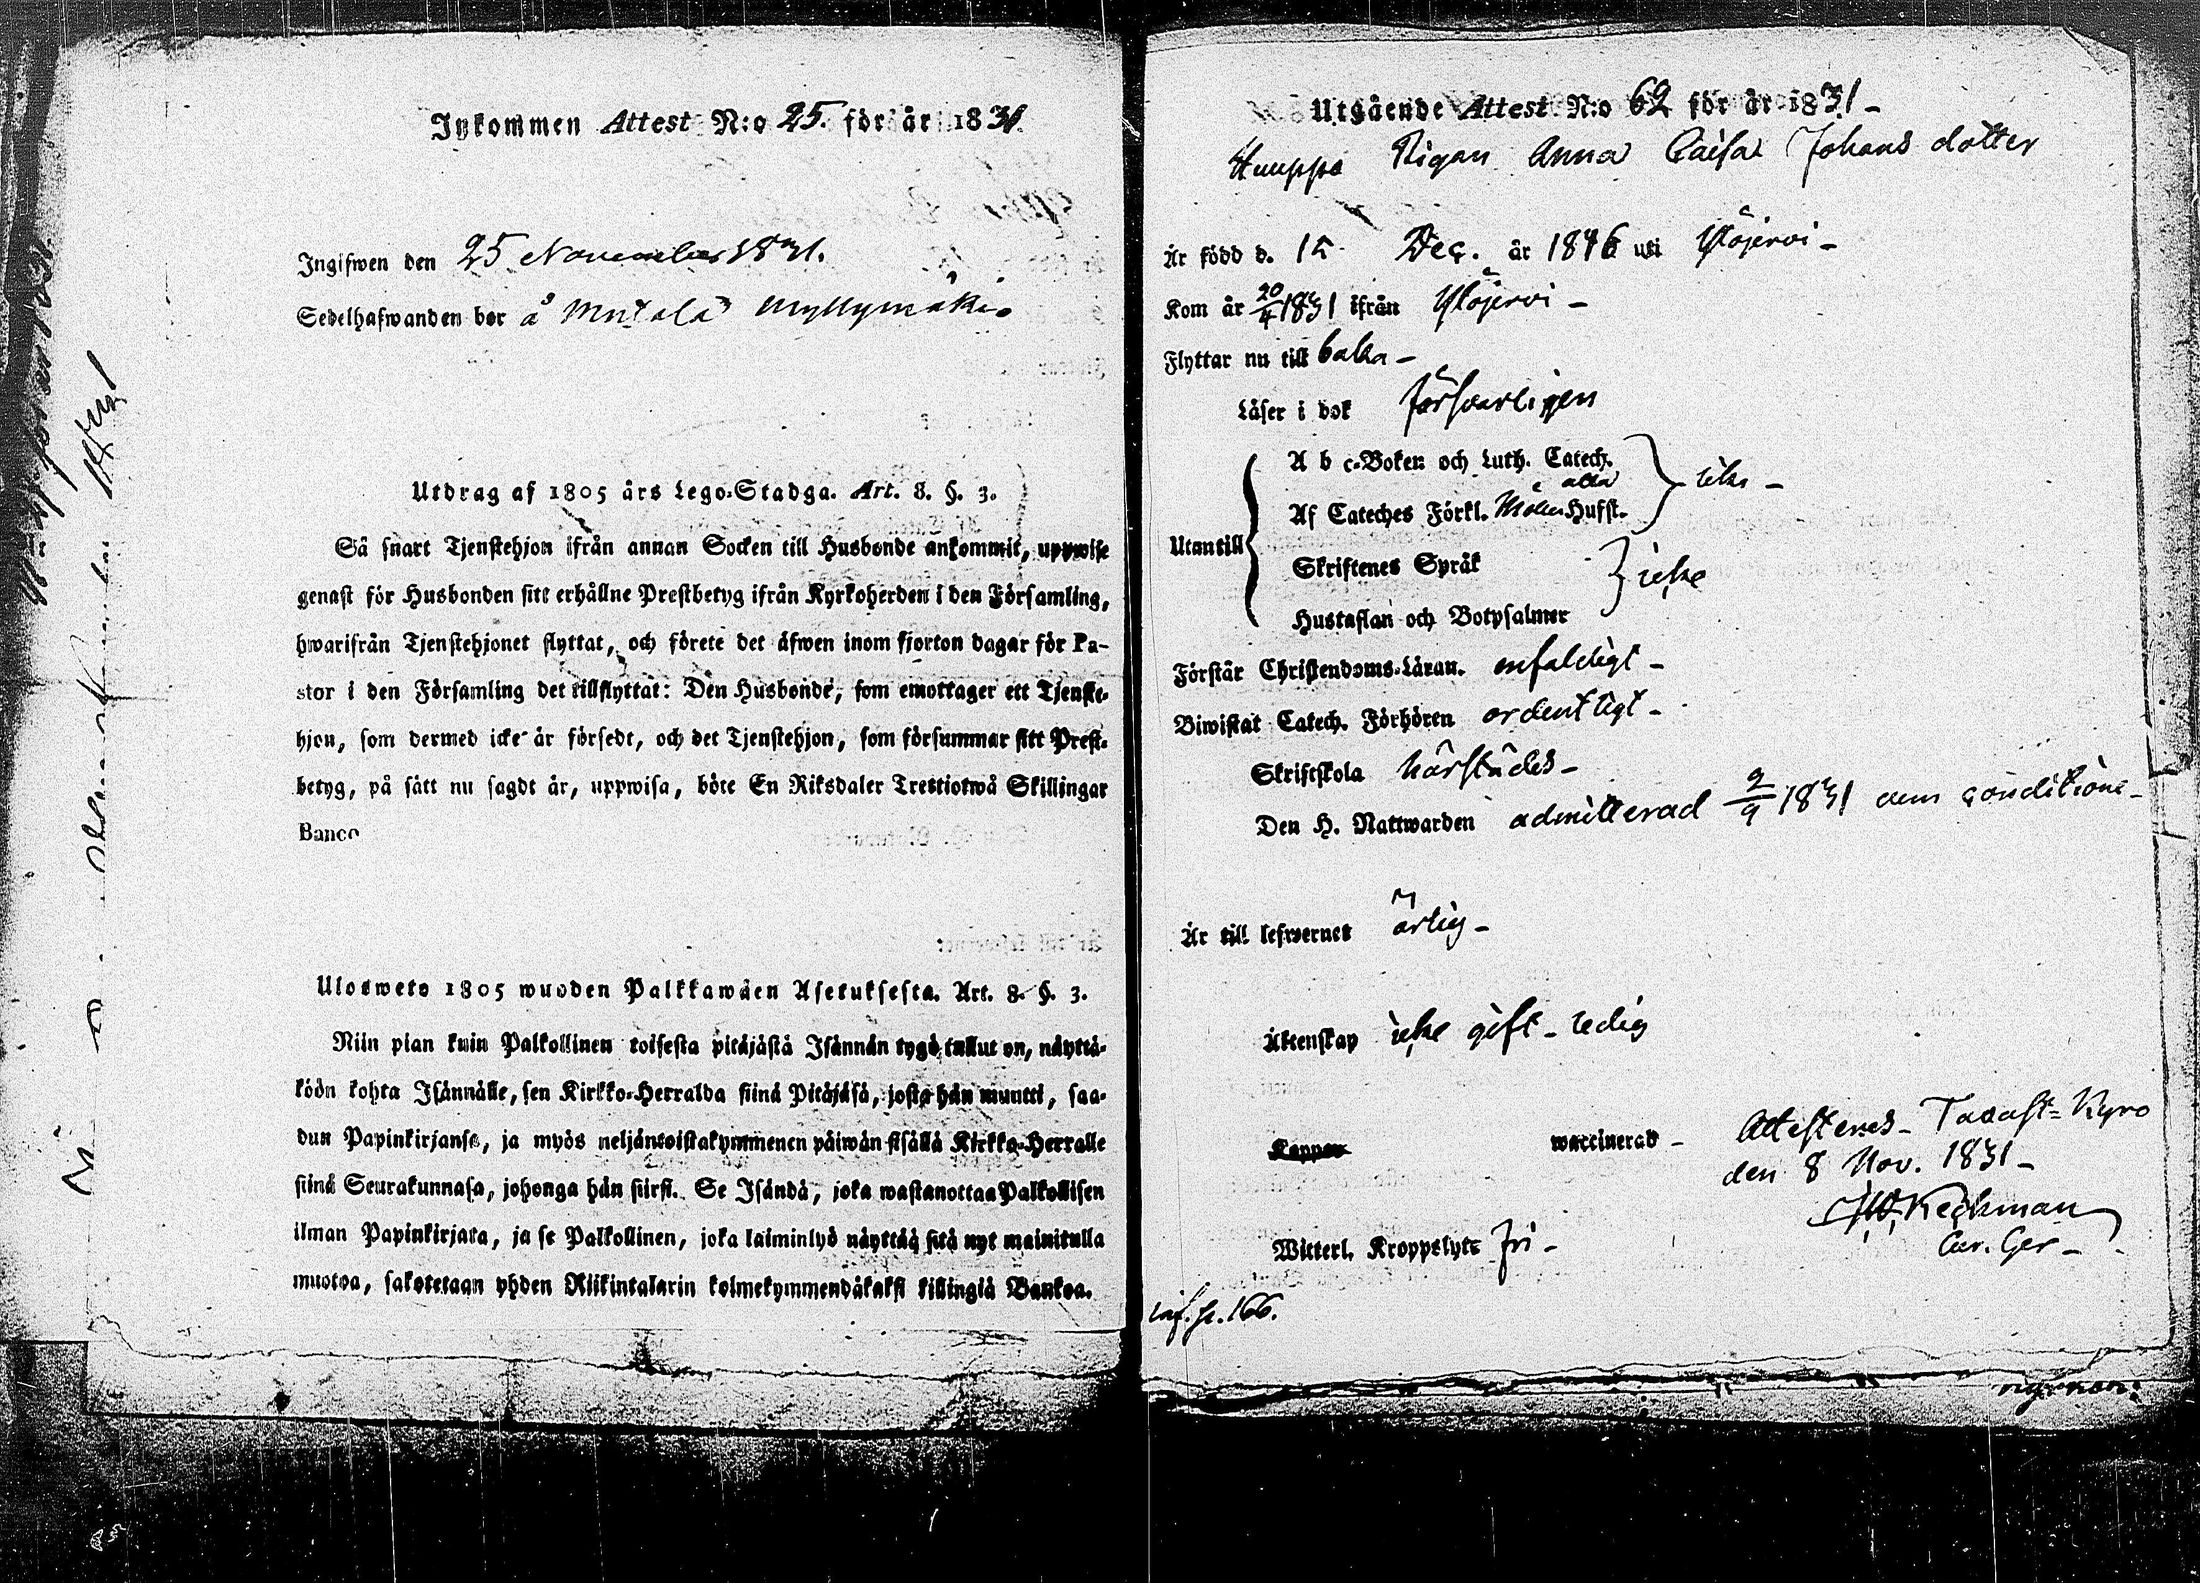 Inkommen Attest N:o 25. för år 1831.
Ingifwen den 25 November 1831.
Sedelhafwanden bor å Mutala Myllymäki.
Utdrag af 1805 års Lego-Stadga. Art. 8. §. 3.
Så snart Tjenstehjon ifrån annan Socken till Husbonde ankommit, uppwise
genast för Husbonden sitt erhållne Prestbetyg ifrån Kyrkoherden i den Församling,
hwarifrån Tjenstehjonet flyttat, och förete det äfwen inom fjorton dagar för Pa-
stor i den Församling det tillflyttat: Den Husbonde, som emottager ett Tjenste-
hjon, som dermed icke är försedt, och det Tjenstehjon, som försummar sitt Prest-
betyg, på sätt nu sagdt är, uppwisa, böte En Riksdaler Trettiotwå Skillingar
Banco
Ulosweto 1805 wuoden Palkkawäen Asetuksesta. Art. 8. §. 3.
Niin pian kuin Palkollinen toisesta pitäjästä Isännän tygö tullut on, näyttä-
köön kohta Isännälle, sen Kirkko-Herralda siinä Pitäjäsä, josta hän muutti, saa-
dun Papinkirjansa, ja myös neljäntoistakymmenen päiwän sisällä Kirkko-Herralle
siinä Seurakunnasa, johonga hän siirsi. Se Isändä, joka wastanottaa Palkollisen
ilman Papinkirjata, ja se Palkollinen, joka laiminlyö näyttää sitä nyt mainitulla
muotoa, sakotetaan yhden Riikintalarin kolmekymmendäkaksi killingiä Bankoa.
Utgående Attest N:o 62 för år 1831 -
Huuppo Pigan Anna Caisa Johans dotter
Är född d. 15 Dec. år 1816 uti Ylöjervi -
Kom år 20/4 1831 ifrån Ylöjervi -
Flyttar nu till baka -
Läser i bok försvarligen
A b c-Boken och Luth. Catech.
alla
Af Cateches Förkl. Hufst.
Utantill
Skriftenes Språk
icke
Hustaflan och Botpsalmer
Förstår Christendoms-Läran. enfaldigt -
Biwistat Catech. Förhören ordentligt -
Skriftskola härstädes -
Den H. Nattwarden admitterad 2/9 1831 conditione -
Är till lefwernet ärlig -
Äktenskap icke gift - ledig
Koppor waccinerad -
Attesteres - Tavast-Kyro
den 8 Nov. 1831 -
Keckman
Cur. Ger -
Witterl. Kroppslyte fri -
inf. p. 166.